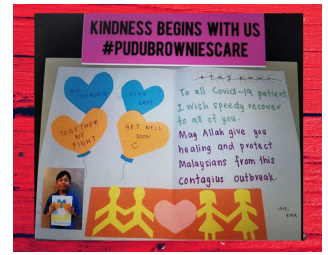 KINDNESS BEGINS WITH US
#PUDUBROWNIESCARE
BE STRONG
STAY SAFE
TOGETHER
WE
FIGHT
GET WELL
SOON
To all Covid-19 patient,
I wish speedy recover
to all of you.
May Allah give you
healing and protect
Malaysians from this
contagius outbreak.